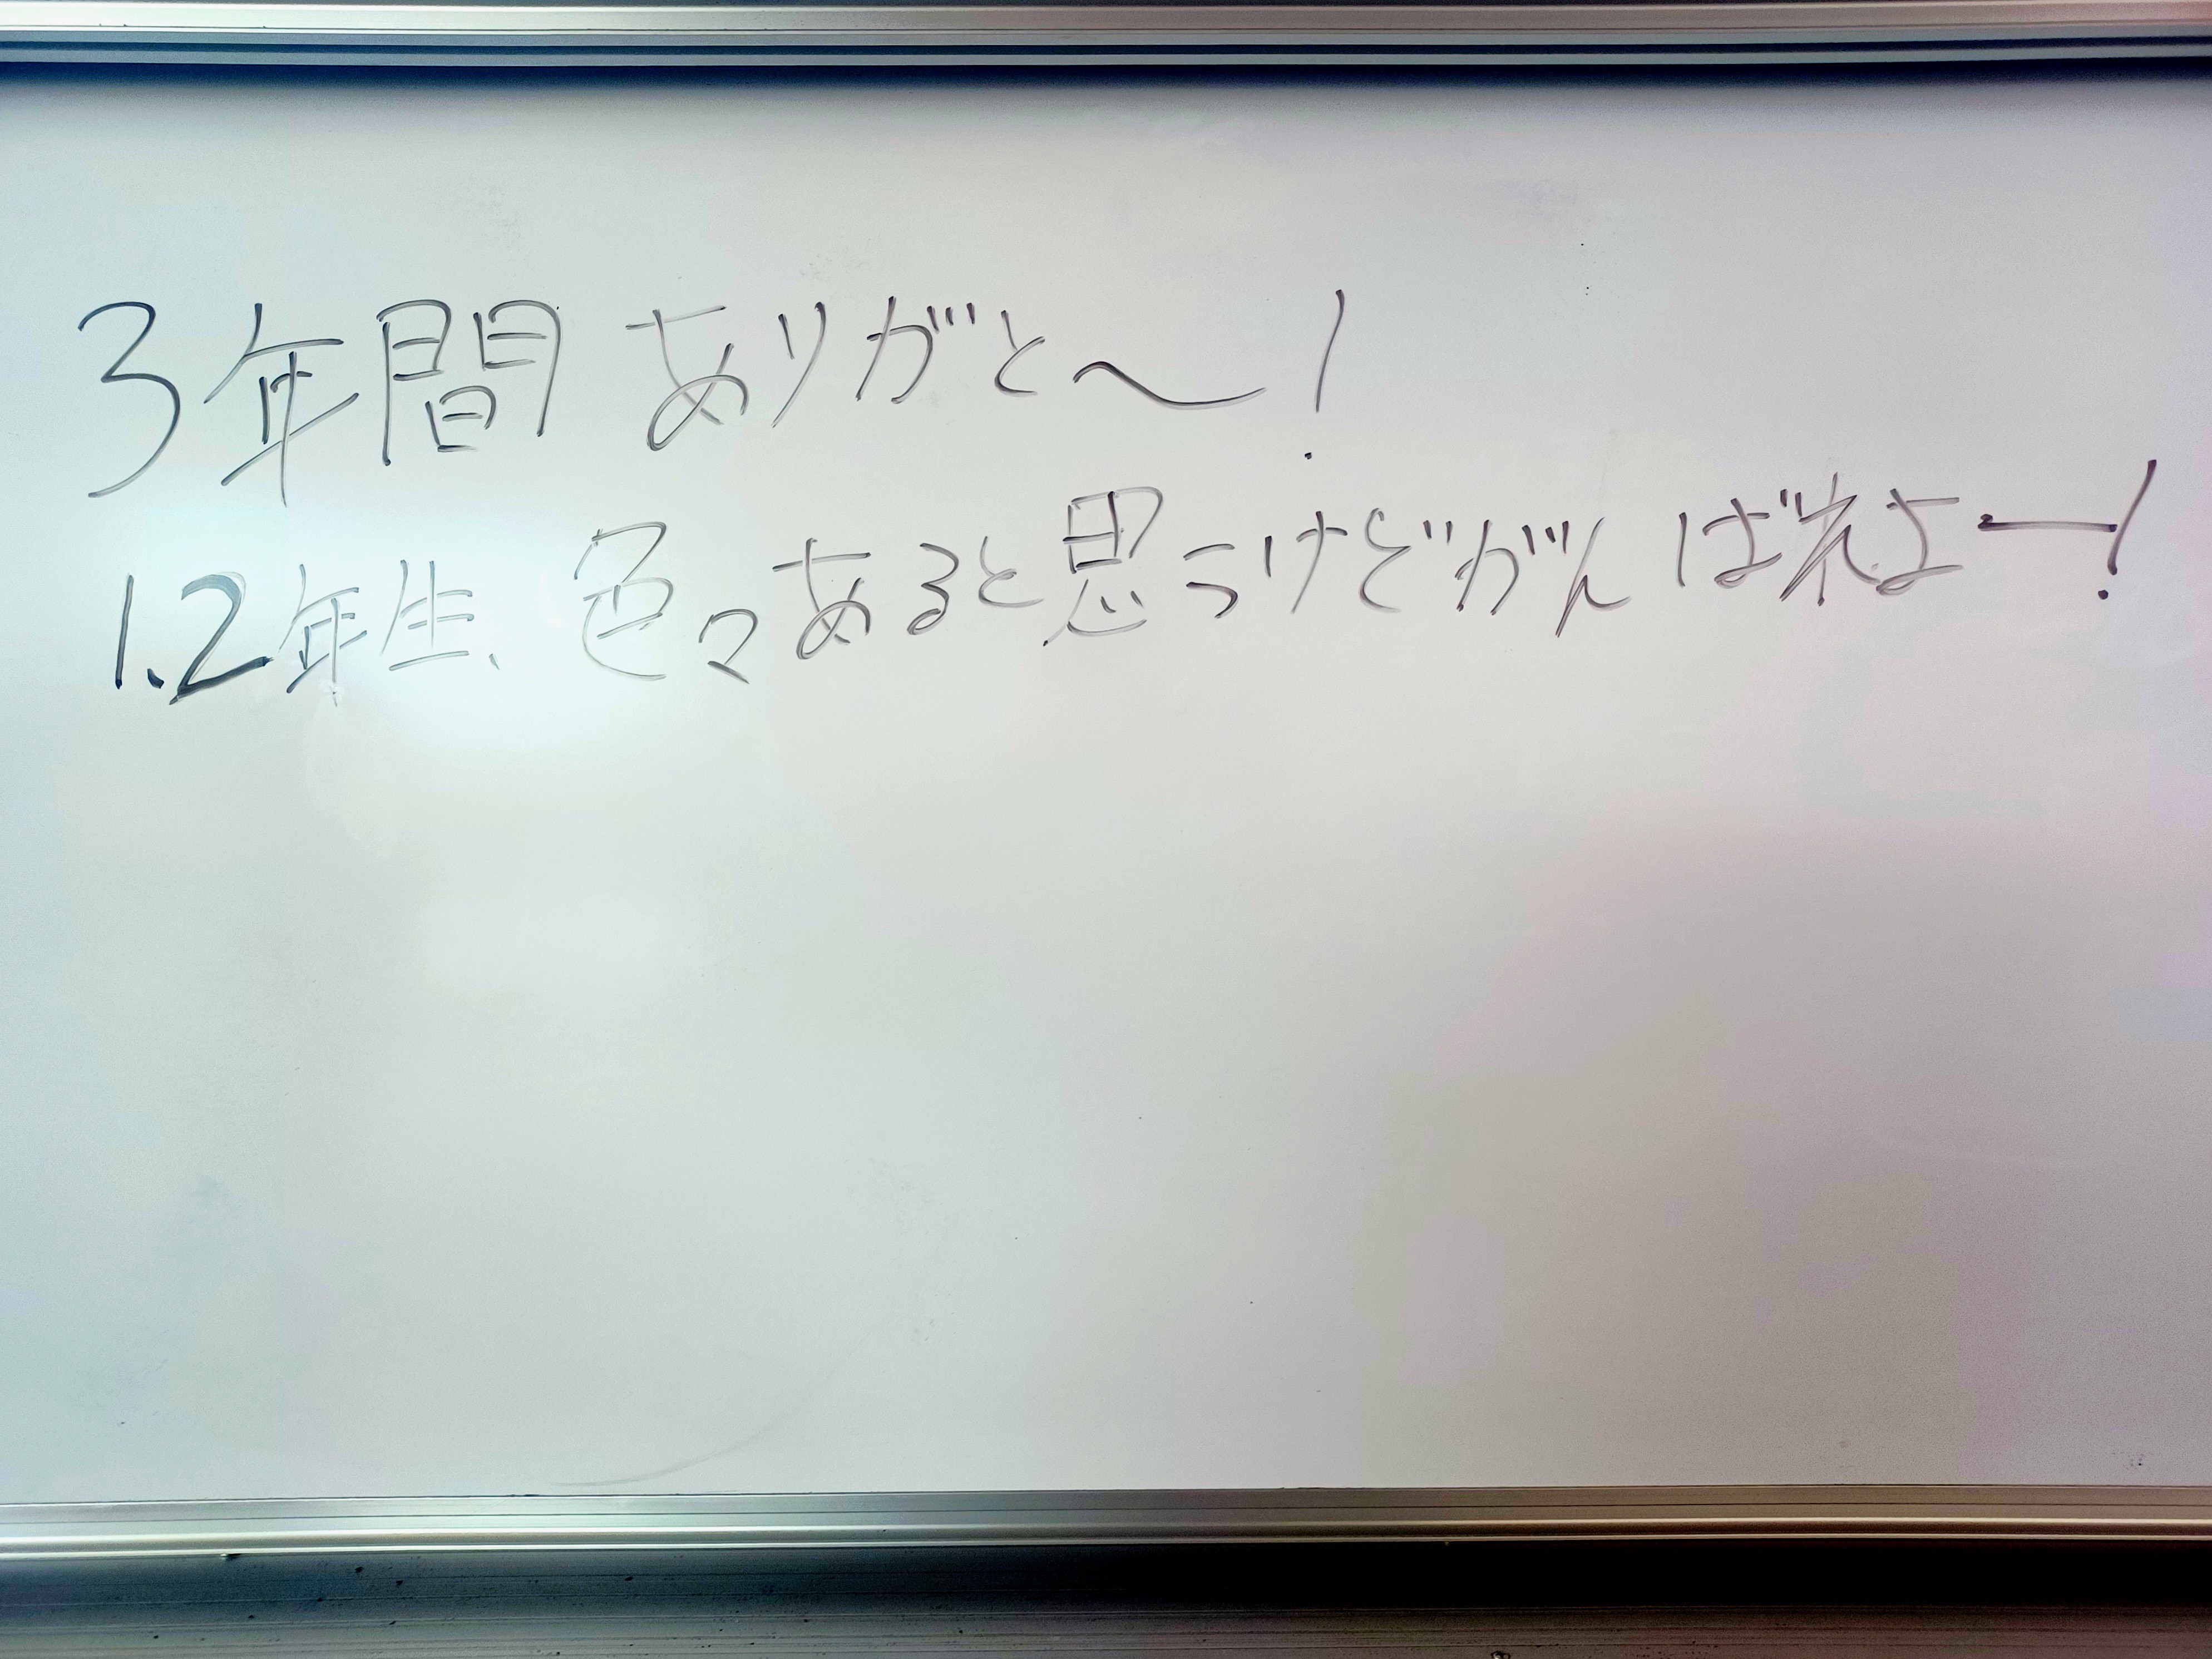 3年間ありがと〜!
1.2年生、色々あると思うけどがんばれよー!